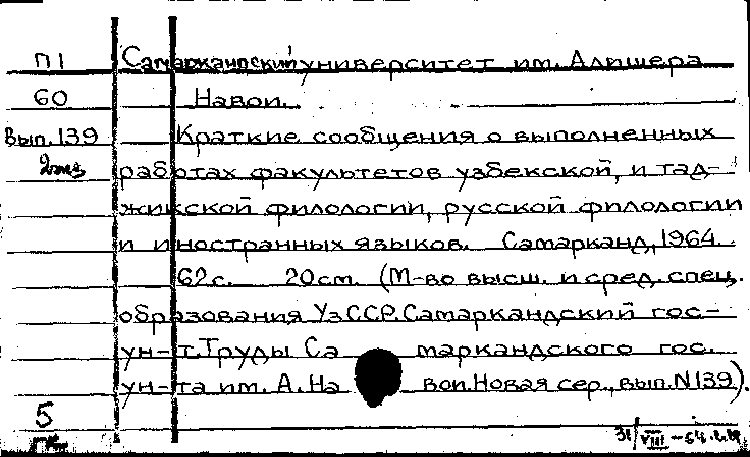 П1 Самаркандский университет им. Алишера
60 Навои.
Вып.139 Краткие сообщения о выполненных
2экз работах факультетов узбекской, и тад-
жикской филологии, русской филологии
и иностранных языков. Самарканд, 1964.
62с. 20см. (М-во высш. и сред. спец.
образования УзССР. Самаркандский гос-
ун-т. Труды Самаркандского гос.
ун-та им. А. Навои. Новая сер., вып. N139).
5
31/VIII-64